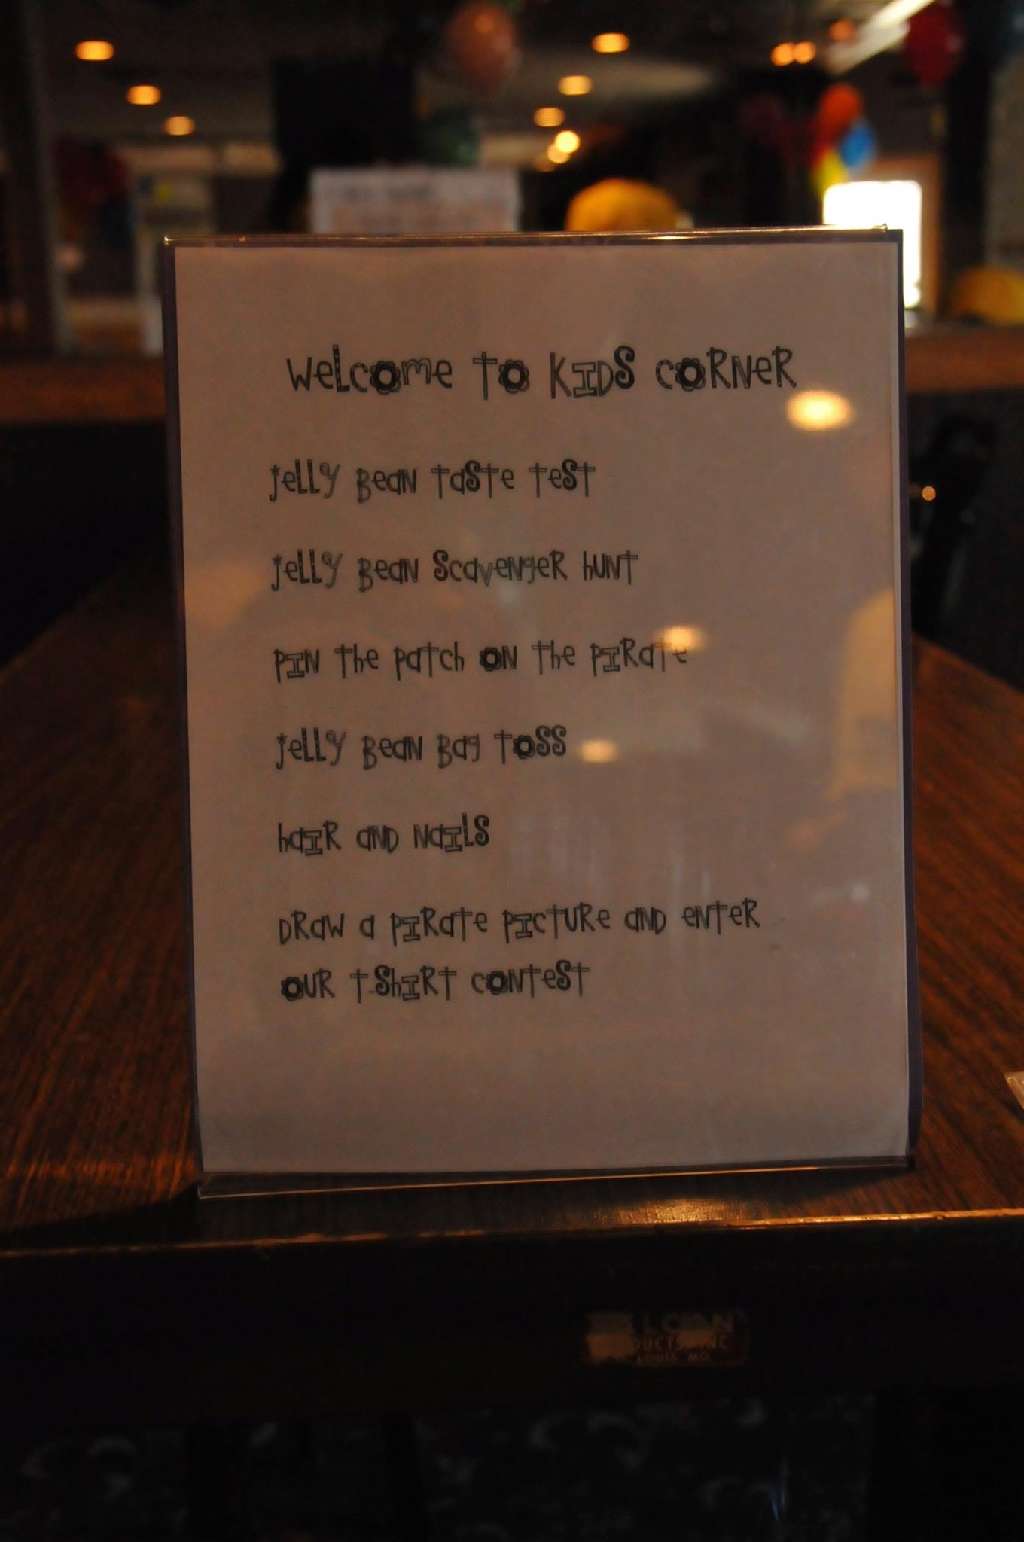 Welcome to Kids Corner
Jelly Bean Taste Test
Jelly Bean Scavenger Hunt
Pin the Patch on the Pirate
Jelly Bean Bag Toss
Hair and Nails
Draw a Pirate Picture and Enter
Our T-Shirt Contest